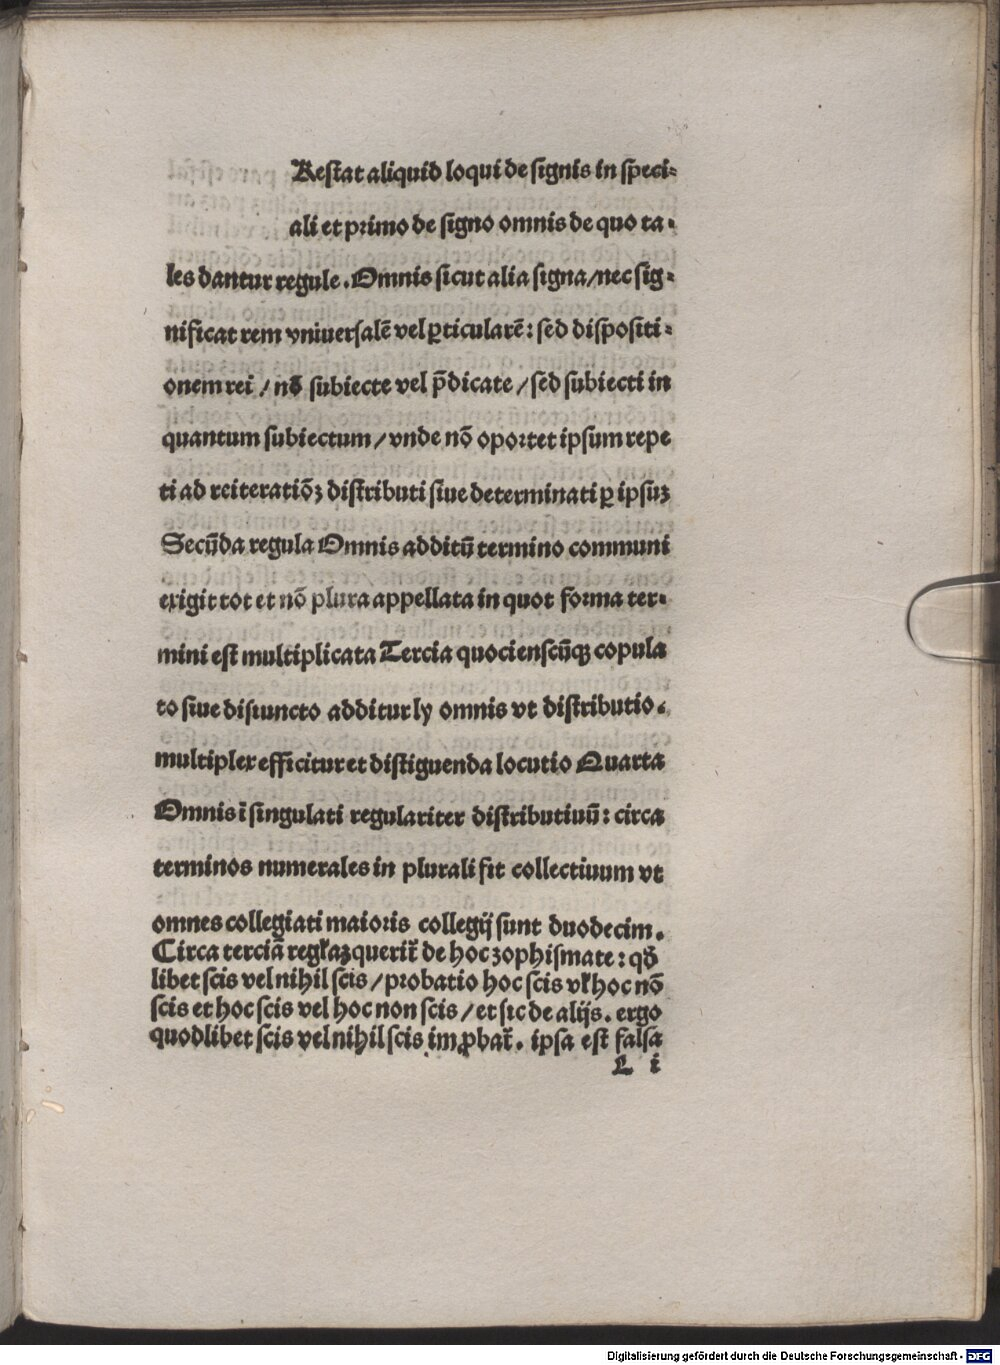 Restat aliquid loqui de signis in speci-
ali et primo de signo omnis de quo ta-
les dantur regule. Omnis sicut alia signa/nec sig-
nificat rem vniuersalē vel ꝑticularē: sed dispositi-
onem rei / nō subiecte vel p̄dicate / sed subiecti in
quantum subiectum / vnde nō oportet ipsum repe
ti ad reiteratiōꝫ distributi siue determinati ꝑ ipsuꝫ
Secūda regula Omnis additū termino communi
exigit tot et nō plura appellata in quot forma ter-
mini est multiplicata Tercia quocienscūqꝫ copula
to siue disiuncto additur ly omnis vt distributio.
multiplex efficitur et distiguenda locutio Quarta
Omnis ī singulati regulariter distributiuū: circa
terminos numerales in plurali fit collectiuum vt
omnes collegiati maioris collegij sunt duodecim.
Circa terciā regl̄aꝫ querit̄ de hoc zophismate: qd̄
libet scis vel nihil scis / probatio hoc scis vl̄ hoc nō
scis et hoc scis vel hoc non scis / et sic de alijs. ergo
quodlibet scis vel nihil scis imꝓbat̄. ipsa est falsa
L i
Digitalisierung gefördert durch die Deutsche Forschungsgemeinschaft - DFG